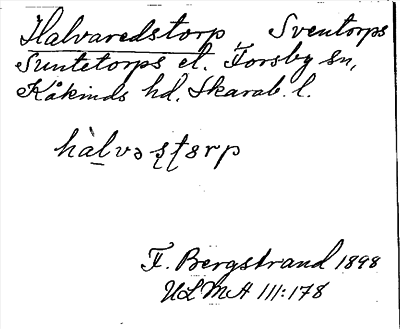 Halvaredstorp Sventorps
Suntetorps el. Forsby sn,
Kåkinds hd. Skarab. l.
hàlvə ʂʈɵrp
F. Bergstrand 1898
ULMA III:178